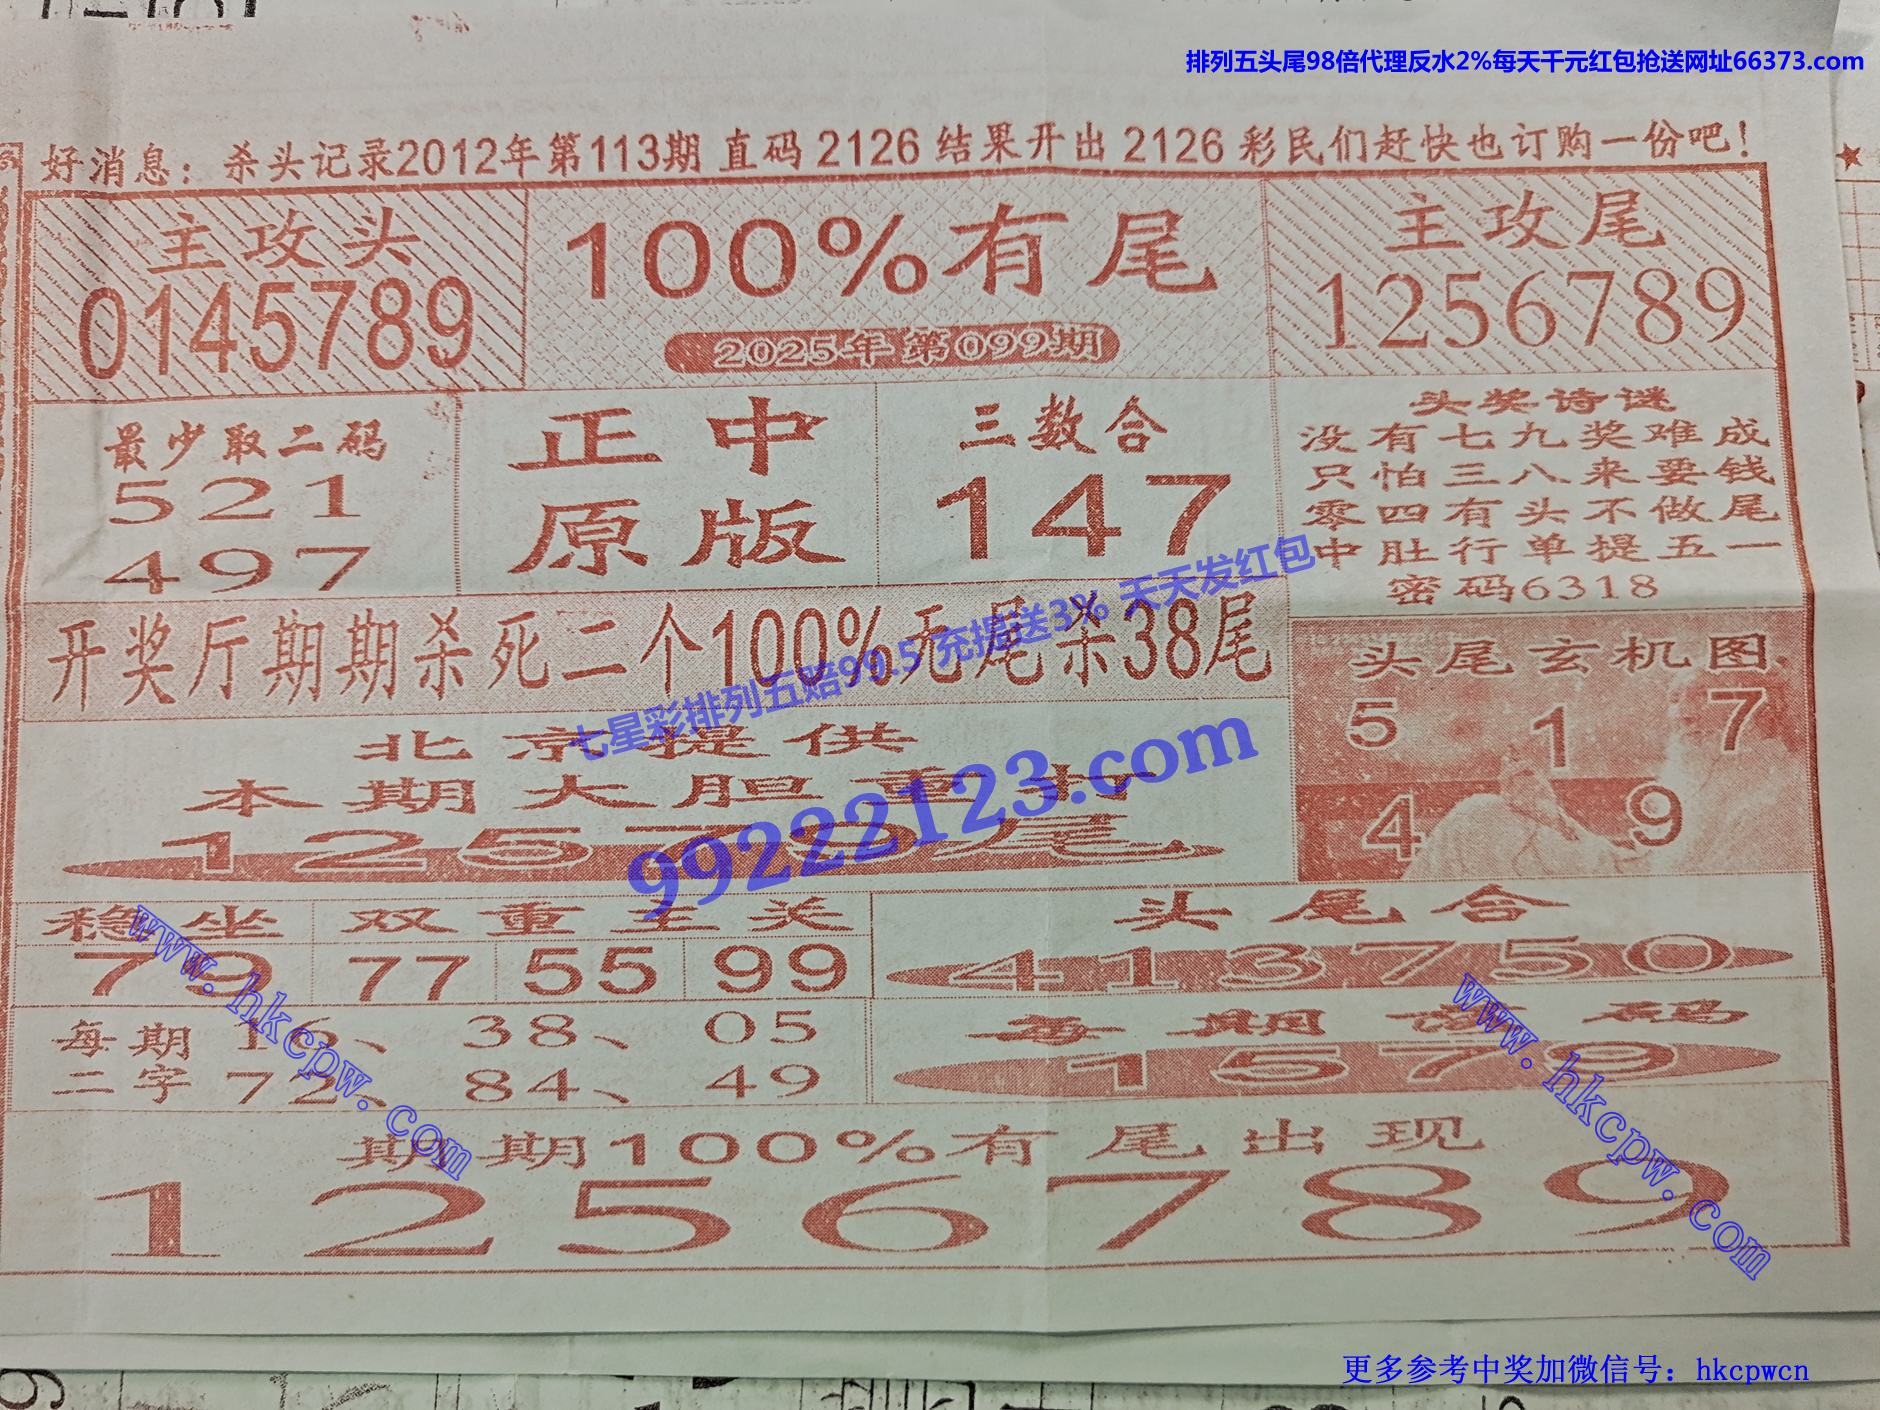 排列五头尾98倍代理反水2%每天千元红包抢送网址66373.com
好消息：杀头记录2012年第113期 直码 2126 结果开出 2126 彩民们赶快也订购一份吧！
主攻头
0145789
100%有尾
2025年第099期
主攻尾
1256789
最少取二码
521
497
正中
原版
三数合
147
头奖诗谜
没有七九奖难成
只怕三八来要钱
零四有头不做尾
中肚行单提五一
密码6318
开奖厅期期杀死二个100%无尾杀38尾
七星彩排列五赔99.5 充提送3% 天天发红包
99222123.com
头尾玄机图
5 1 7
4 9
北京提供
本期大胆重打
12579尾
稳坐
79
双重主关
77 55 99
头尾合
413750
每期
二字
16、 38、 05
72、 84、 49
每期 码
1579
期期100%有尾出现
1256789
www.hkcpw.com
www.hkcpw.com
更多参考中奖加微信号：hkcpwcn